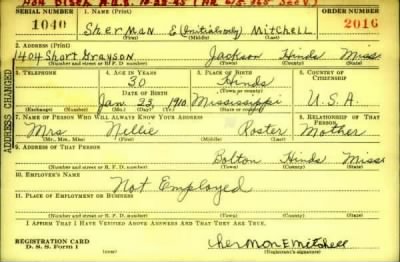 Hon Disch A.U.S. 10-22-45
SERIAL NUMBER 1. NAME (Print) ORDER NUMBER
1040 Sherman E (Initial only) Mitchell 2016
(First) (Middle) (Last)
2. ADDRESS (Print)
1404 Short Grayson Jackson Hinds Miss
(Number and street or R. F. D. number) (Town) (County) (State)
3. TELEPHONE 4. AGE IN YEARS 5. PLACE OF BIRTH 6. COUNTRY OF CITIZENSHIP
30 Hinds
DATE OF BIRTH (Town or county)
Jan. 23, 1910 Mississippi U.S.A.
(Exchange) (Number) (Mo.) (Day) (Yr.) (State or country)
7. NAME OF PERSON WHO WILL ALWAYS KNOW YOUR ADDRESS 8. RELATIONSHIP OF THAT PERSON
Mrs Nellie Roster Mother
(Mr., Mrs., Miss) (First) (Middle) (Last)
9. ADDRESS OF THAT PERSON
Bolton Hinds Miss
(Number and street or R. F. D. number) (Town) (County) (State)
10. EMPLOYER'S NAME
Not Employed
11. PLACE OF EMPLOYMENT OR BUSINESS
(Number and street or R. F. D. number) (Town) (County) (State)
I AFFIRM THAT I HAVE VERIFIED ABOVE ANSWERS AND THAT THEY ARE TRUE.
REGISTRATION CARD
D. S. S. Form 1
Sherman E Mitchell
(Registrant's signature)
ADDRESS CHANGED